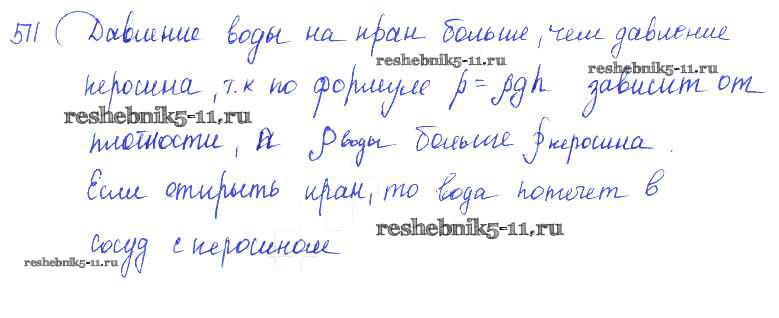 511 Давление воды на кран больше, чем давление
reshebnik5-11.ru
reshebnik5-11.ru
керосина, т.к по формуле p = ρgh зависит от
reshebnik5-11.ru
плотности, а ρ воды больше ρ керосина.
Если открыть кран, то вода потечет в
reshebnik5-11.ru
сосуд с керосином
reshebnik5-11.ru